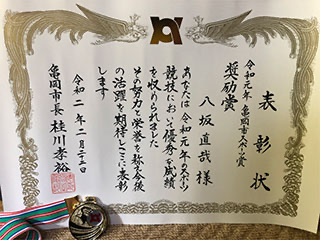 表彰状
令和元年 亀岡市スポーツ賞
奨励賞
八坂直哉 様
あなたは令和元年のスポーツ
競技において優秀な成績
を収められました
その努力と栄誉を称え今後
の活躍を期待しここに表彰
します
令和二年二月二十三日
亀岡市長 桂川孝裕